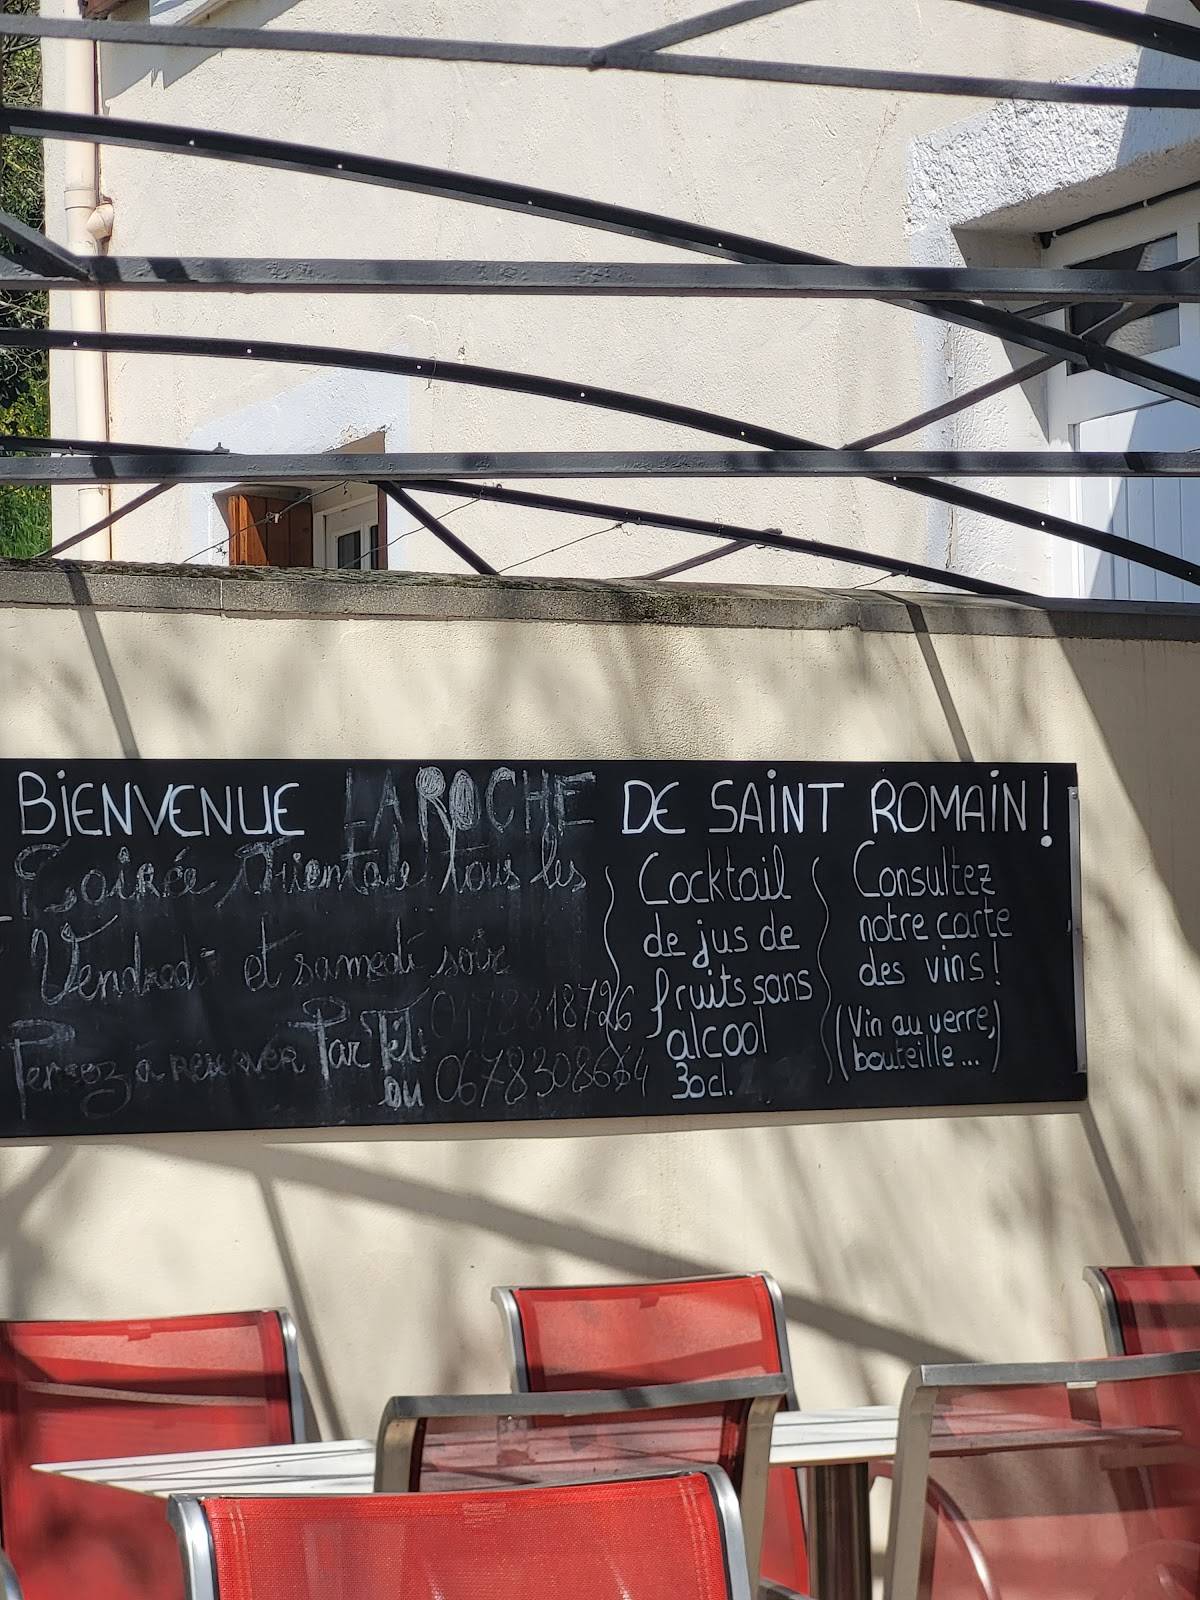 BIENVENUE LA ROCHE DE SAINT ROMAIN!
Soirée Orientale tous les
Vendredi et samedi soir
Pensez à réserver Par Tél:
ou 0678308664
Cocktail
de jus de
fruits sans
alcool
30cl.
Consultez
notre carte
des vins!
(Vin au verre,
bouteille...)